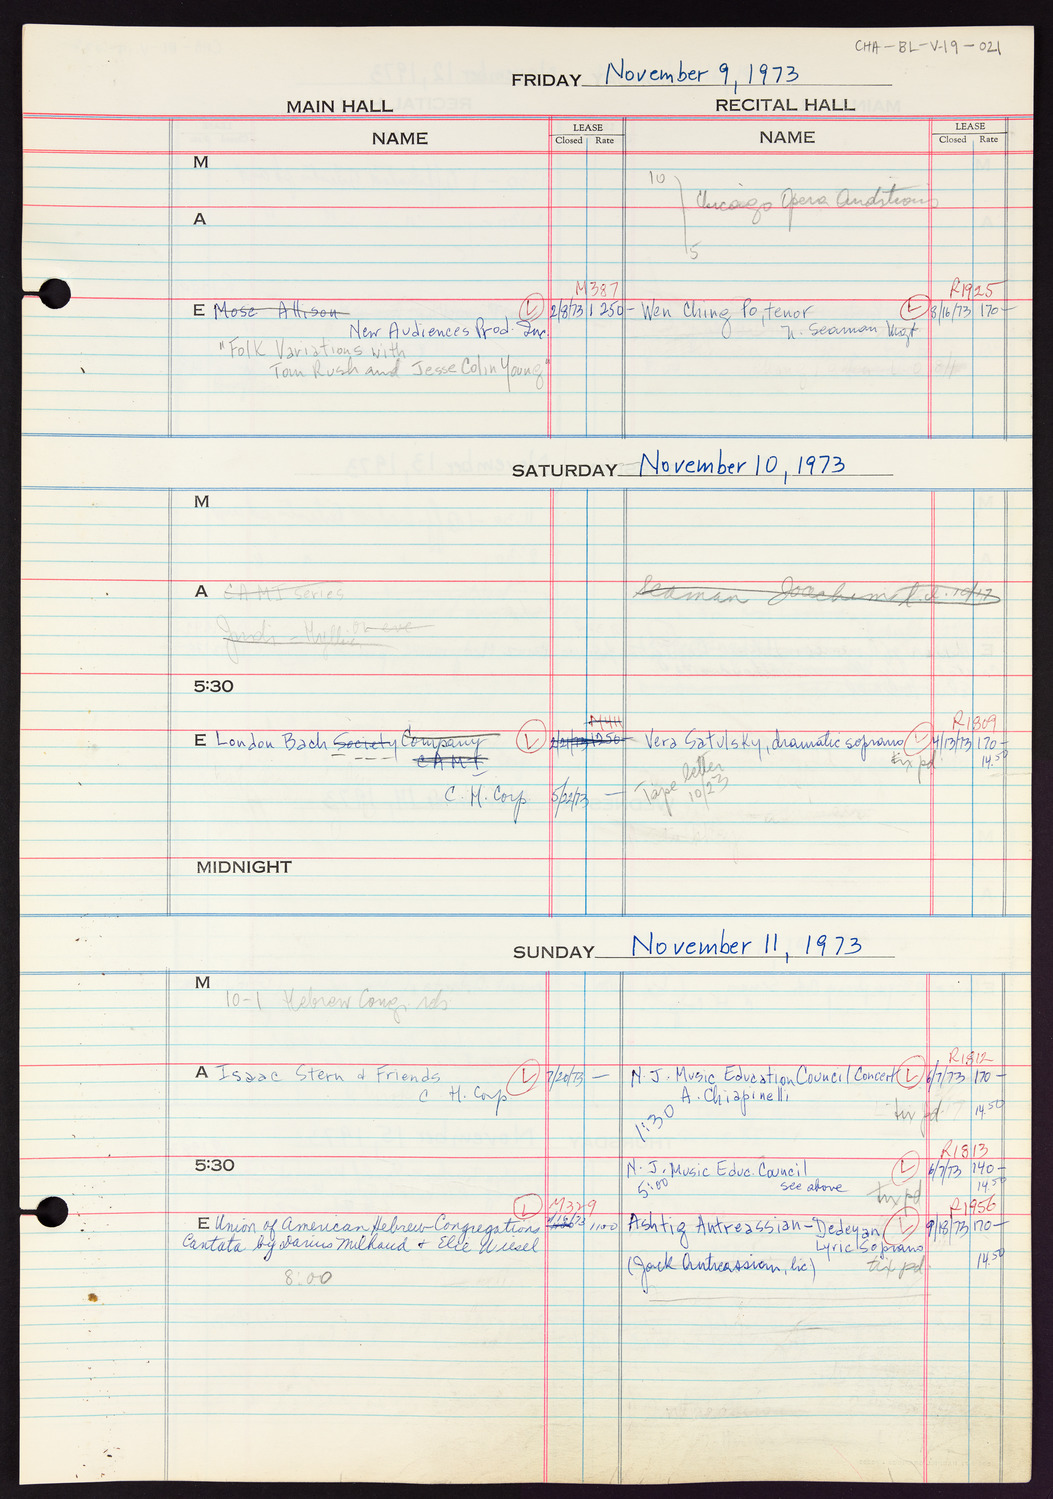 CHA-BL-V-19-021
FRIDAY November 9, 1973
MAIN HALL RECITAL HALL
NAME LEASE Closed Rate NAME LEASE Closed Rate
M
10
Chicago Opera Auditions
A
5
M387 R1925
E Mose Allison L 2/8/73 1250- Wen Ching Po, tenor L 8/16/73 170-
New Audiences Prod. Inc. N. Seaman Mgt
"Folk Variations with
Tom Rush and Jesse Colin Young"
SATURDAY November 10, 1973
M
A CAMI series Seaman Joachim
Judi
5:30
M411 R1809
E London Bach Society Company L 2/21/73 1250- Vera Satulsky, dramatic soprano L 4/13/73 170-
CAMI tix pd 14.50
Tape letter
10/23
C. H. Corp 5/22/73 -
MIDNIGHT
SUNDAY November 11, 1973
M
10-1 Hebrew Cong.
R1812
A Isaac Stern & Friends L 7/20/73 - N.J. Music Education Council Concert L 6/7/73 170-
C H. Corp A. Chiapinelli
1:30 tix pd 14.50
R1813
5:30 N.J. Music Educ. Council L 6/7/73 140-
5:00 see above tix pd 14.50
L M329 R1956
E Union of American Hebrew Congregations 1100 Ashtig Antreassian-Dedeyan L 9/18/73 170-
Cantata by Darius Milhaud & Elie Wiesel Lyric Soprano
8:00 (Jack Antreassian, lic) tix pd. 14.50